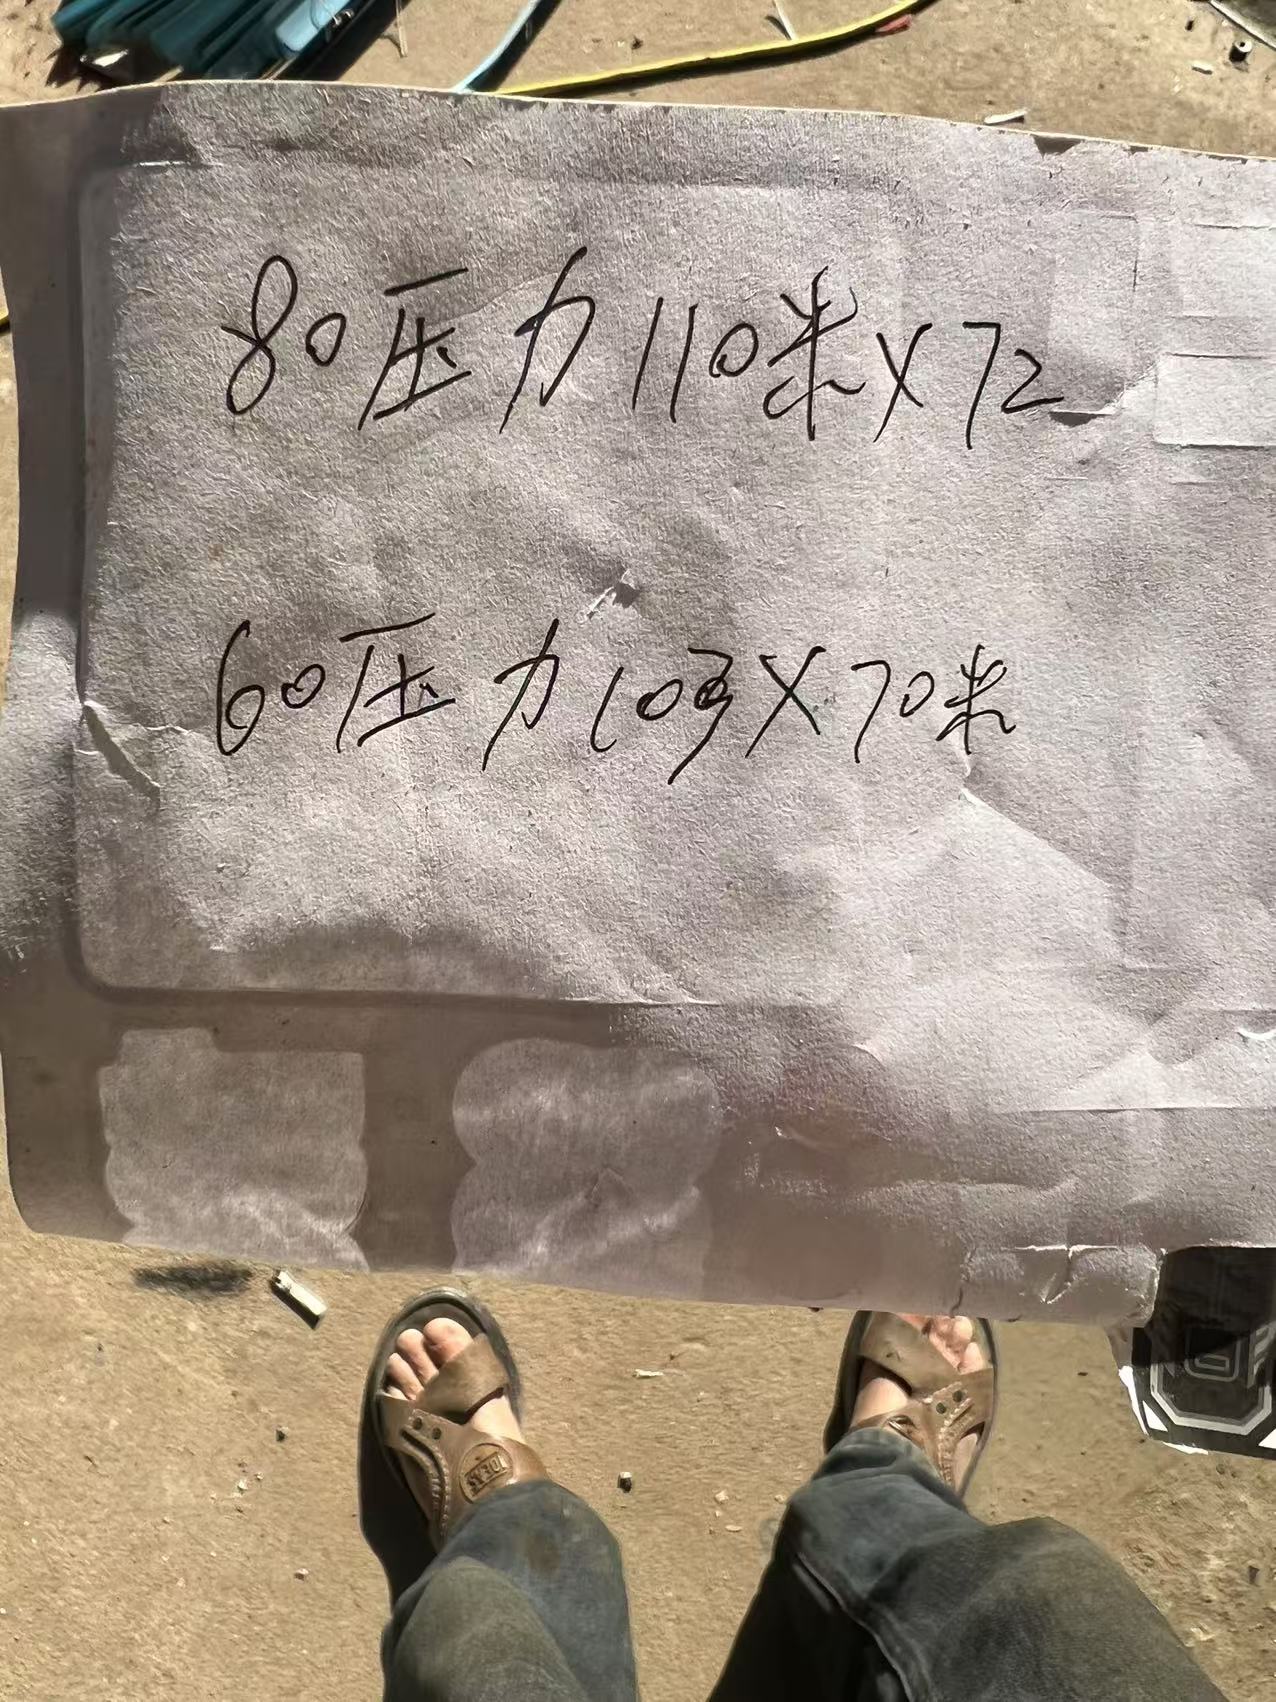 80压力110米X72
60压力103X70米